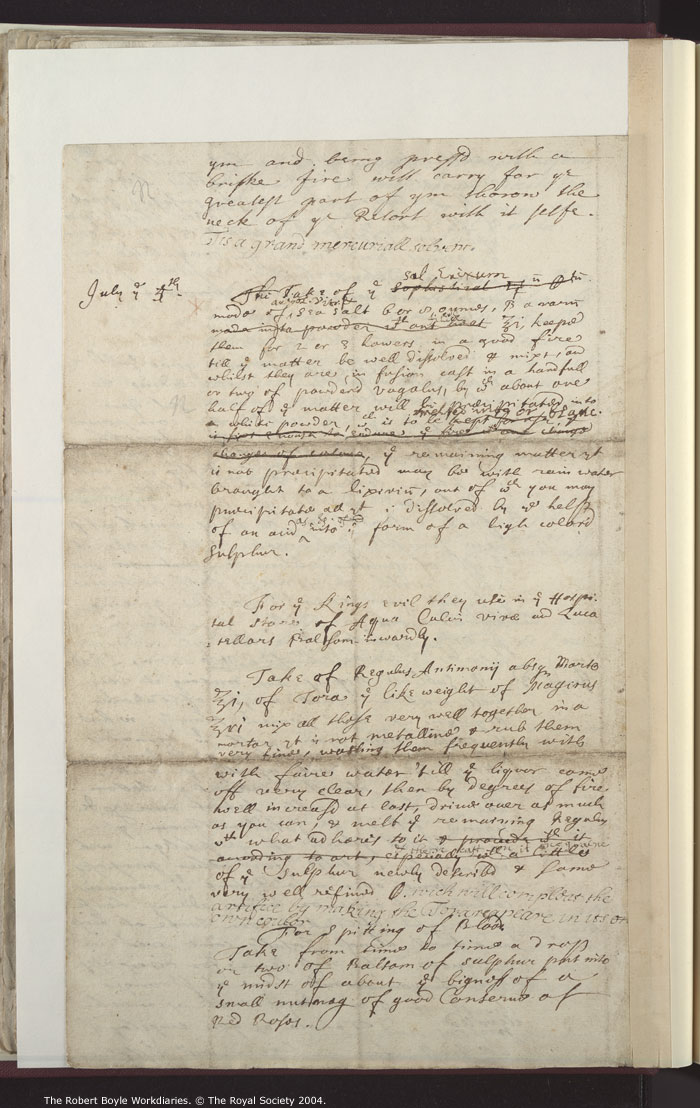 ym and being press'd with a
briske fire will carry for ye
greatest part of ym thorow the
neck of ye Retort with it selfe.
Tis a grand mercuriall solvent.
July ye 4th.
sal Enixum
The Take of ye Sophisticat
made of Sea salt 6 or 8 ounces, a warm
made into a powder ℥j, keepe
them for 2 or 3 howers in a good fire
till ye matter be well dissolved & mixt, and
whilst they are in fusion cast in a handfull
or two of powderd by wch about one
half of ye matter will be præcipitated into
a white powder, wch is to be kept
changes of colour, ye remaining matter yt
is not præcipitated may be with rain water
brought to a lixiviũ, out of wch you may
præcipitate all yt is dissolved by ye help
of an acid into ye form of a ligh colord
Sulphur.
For ye Kings evil they use in ye Hospi-
tal Stone of Aqua Calcis vivæ and Luca
-tellars Balsom inwardly.
Take of Regulus Antimonij absq Marte
℥j, of ye like weight of
℥vj mix all these very well together in a
mortar yt is not metalline & rub them
very fine, washing them frequently with
with faire water till ye liquor come
off very clear, then by degrees of fire
well increasd at last, drive over as much
as you can, & melt ye remaining Regulus
wth what adhæres to it & proceede wth it
according to art, especially wth a little
of ye Sulphur newly describd & some
very well refined wich will compleat the
artifice by making the appeare in its
own color
For Spitting of Blood
Take from time to time a drop
or two of Balsam of sulphur put into
ye midst of about ye bigness of a
small nutmeg of good Conserve of
Red Roses.